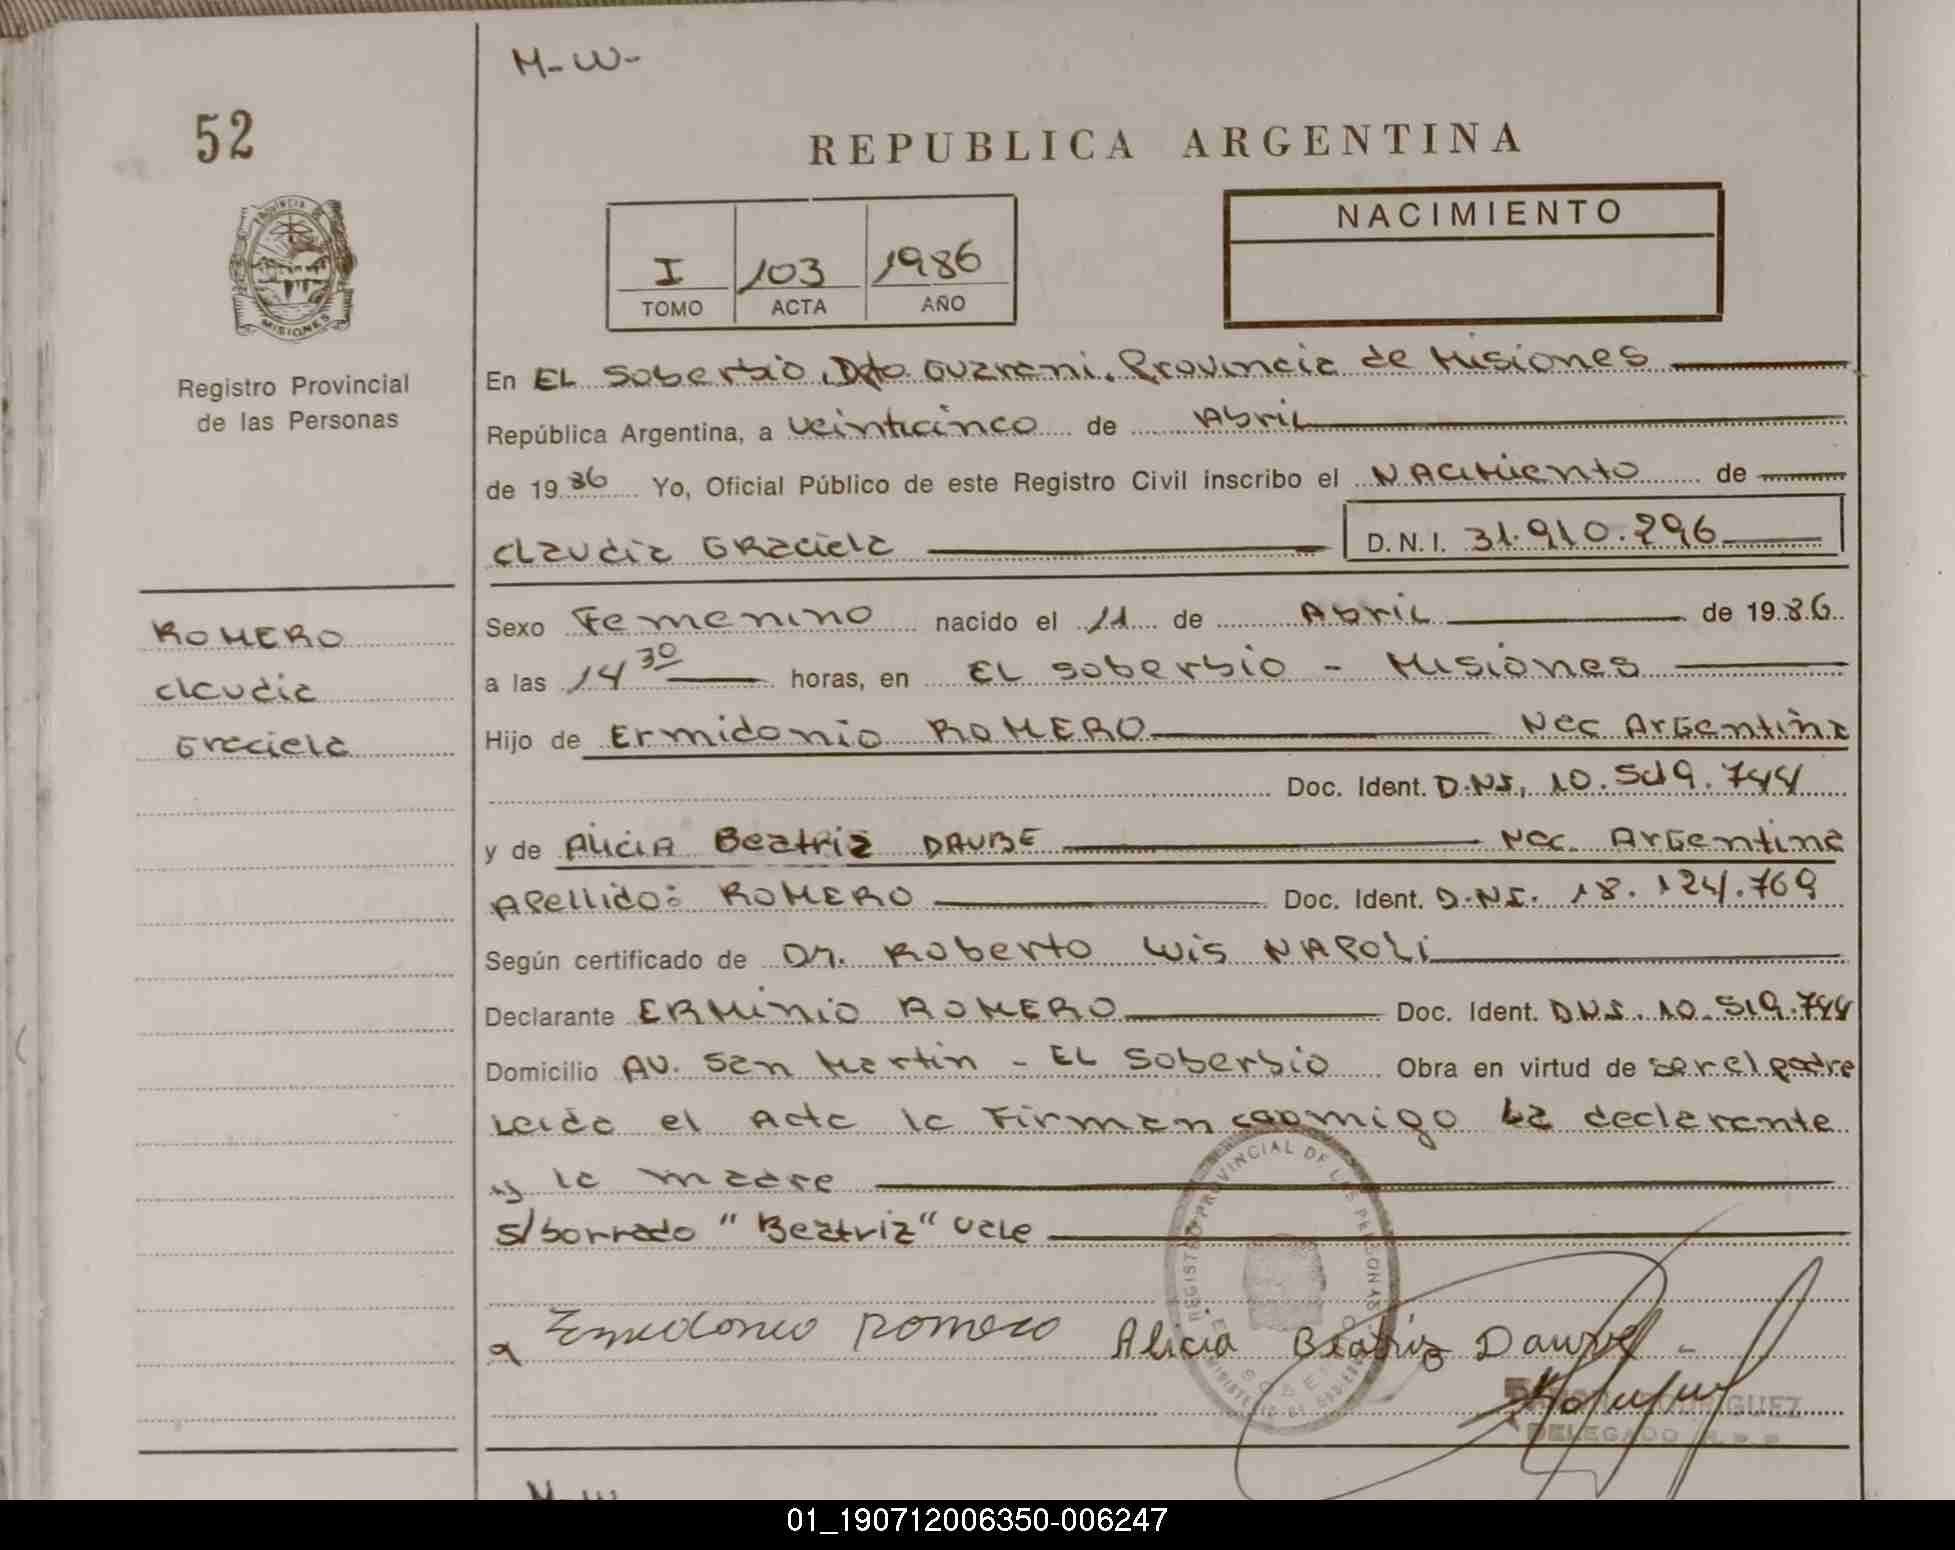 M-W-
52
REPUBLICA ARGENTINA
NACIMIENTO
I 103 1986
TOMO ACTA AÑO
PROVINCIA DE
MISIONES
Registro Provincial
de las Personas
En EL Soberbio, Dpto Guarani. Provincia de Misiones
República Argentina, a veinticinco de Abril
de 1986 Yo, Oficial Público de este Registro Civil inscribo el NACIMIENTO de
CLAUDIA GRACIELA D.N.I. 31.910.796
ROMERO
Claudia
Graciela
Sexo Femenino nacido el 11 de Abril de 1986
a las 14 30 horas, en EL Soberbio - Misiones
Hijo de Ermidonio ROMERO Nac Argentina
Doc. Ident. D.NI. 10.519.744
y de Alicia Beatriz DAUBE Nac. Argentina
Apellido: ROMERO Doc. Ident. D.NI. 18.124.769
Según certificado de Dr. Roberto Luis NAPOLI
Declarante ERMINIO ROMERO Doc. Ident. DNI. 10.519.744
Domicilio AV. San Martin - EL Soberbio Obra en virtud de ser el padre
Leida el Acta la Firman conmigo La declarante
y la madre
S/borrado "Beatriz" vale
REGISTRO PROVINCIAL DE LAS PERSONAS
Ermidonio Romero Alicia Beatriz Daube
DELEGADO
M-W
01_190712006350-006247